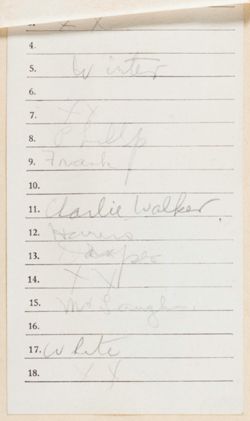 4.
5. Winter
6.
7. XX
8. Phillip
9. Frank
10.
11. Charlie Walker
12.
13.
14. XX
15.
16.
17. White
18. XX